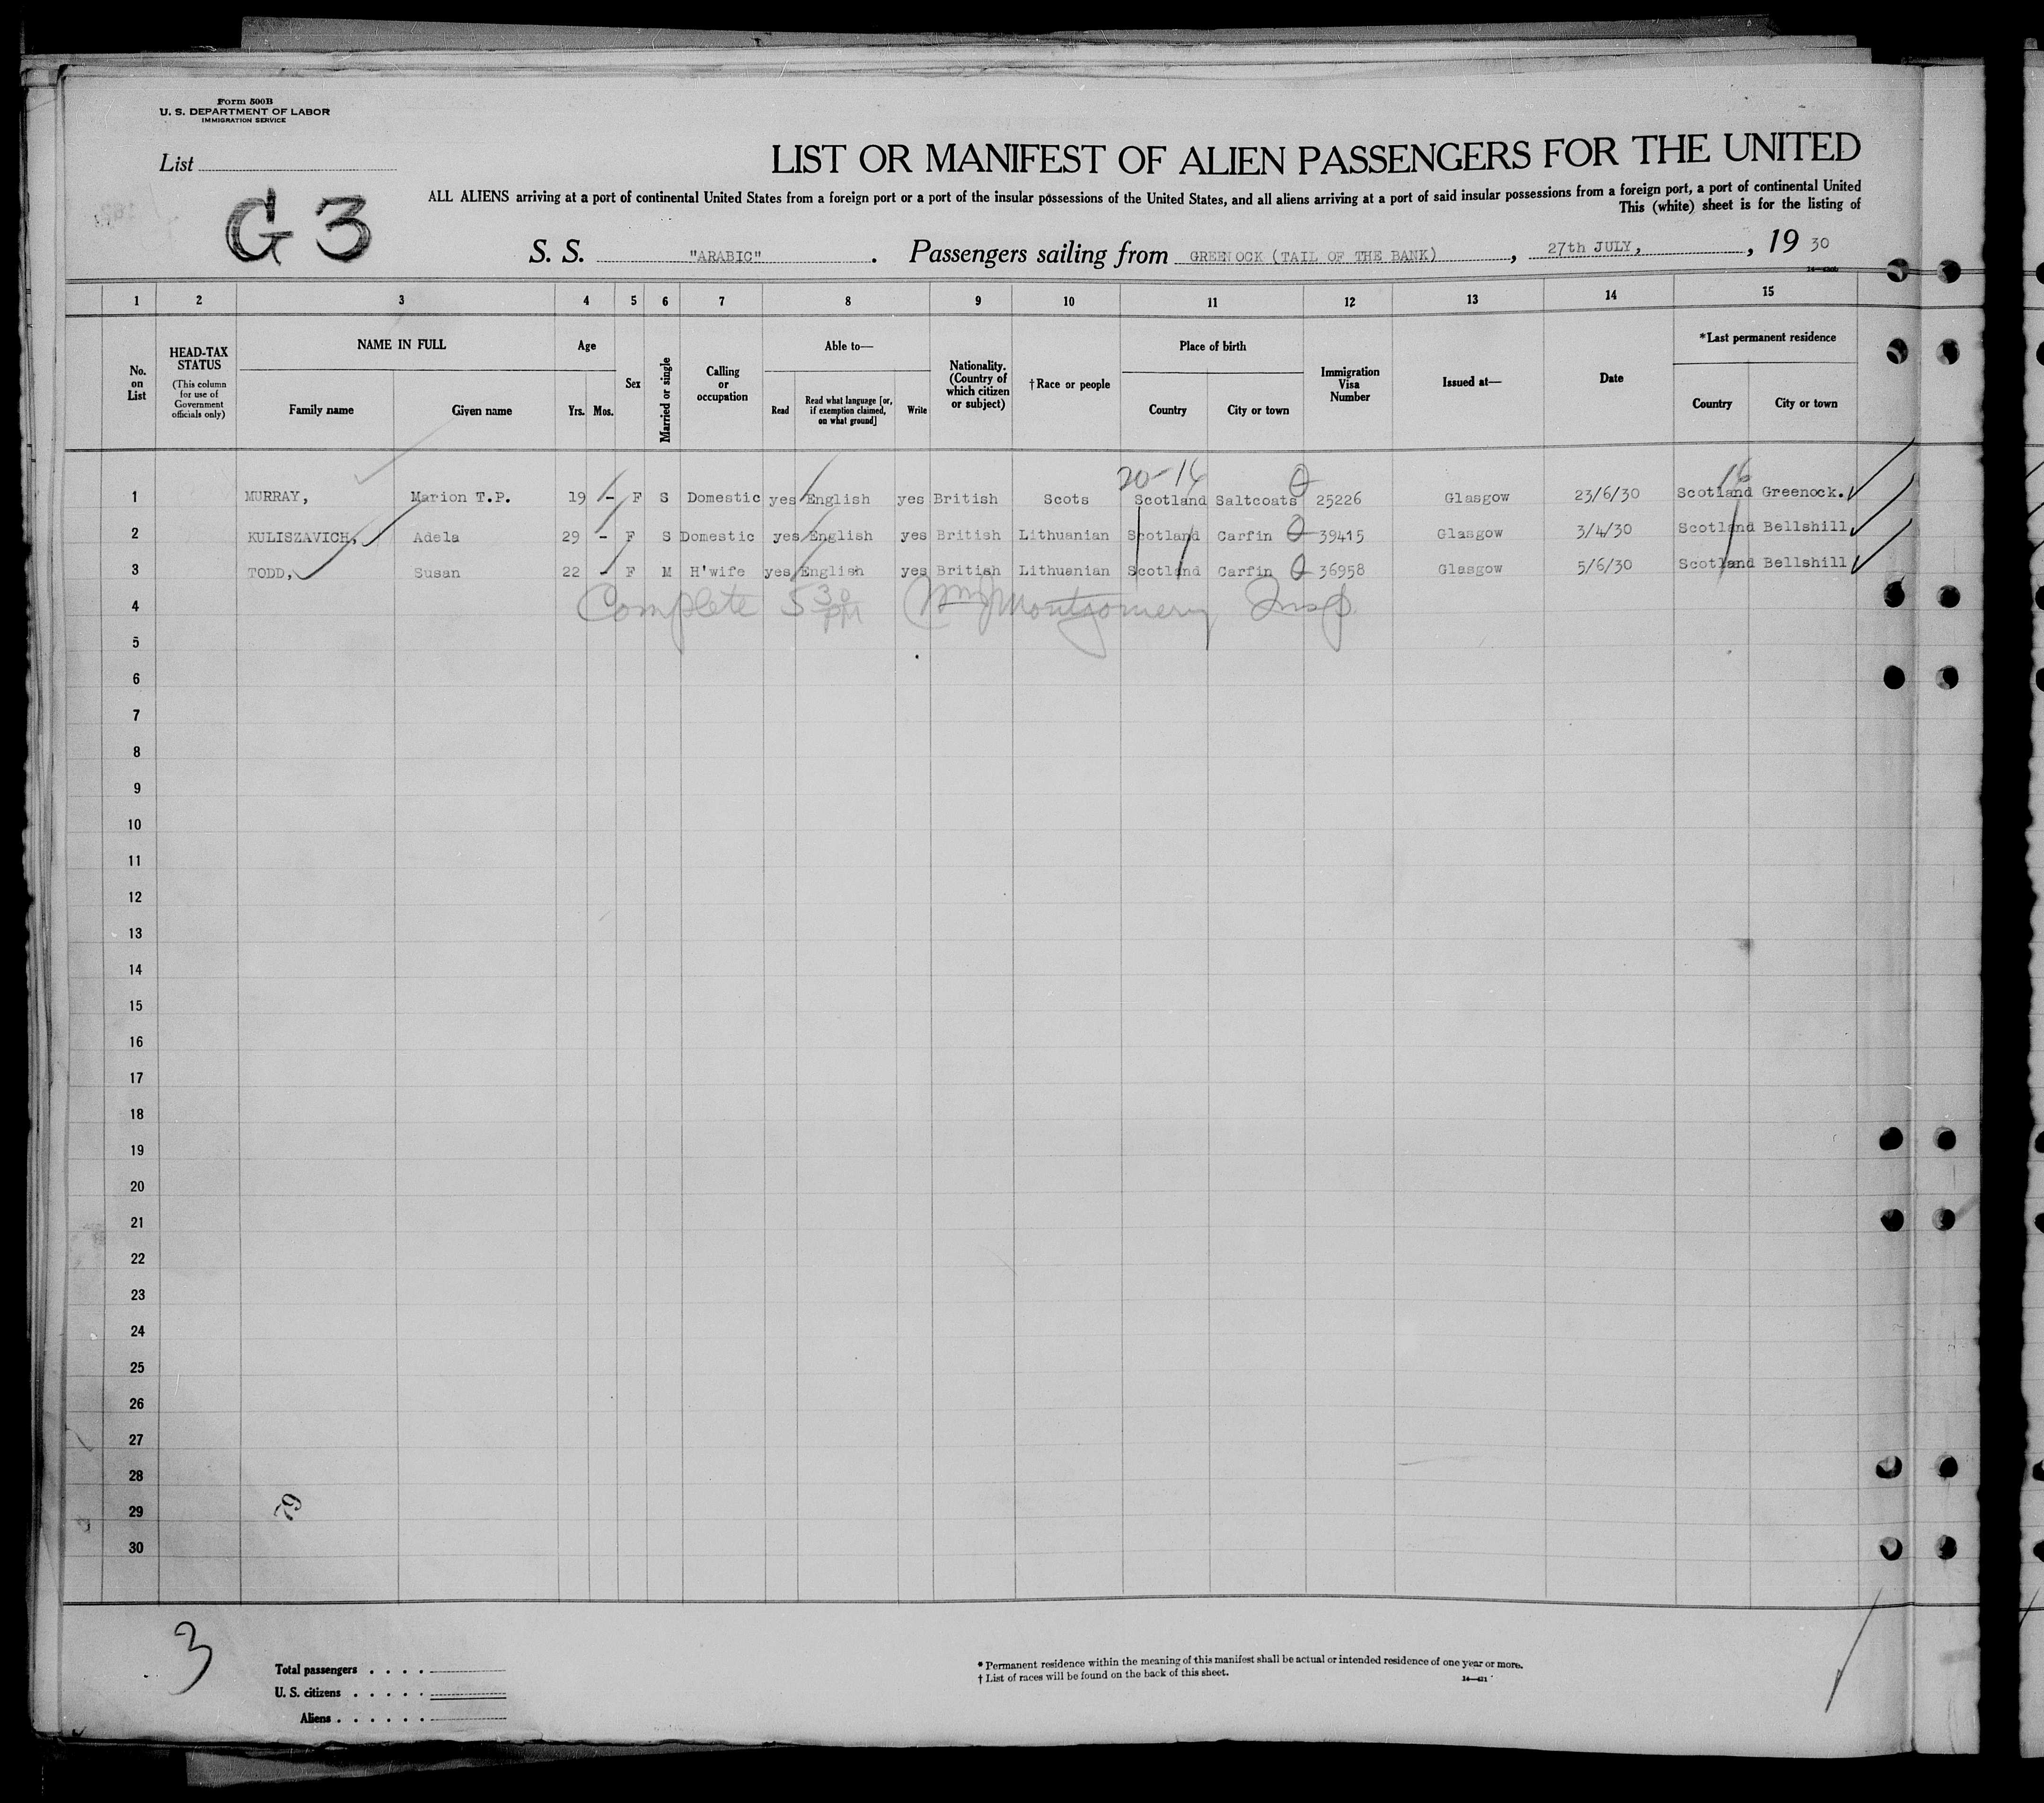 Form 500B
U. S. DEPARTMENT OF LABOR
IMMIGRATION SERVICE
List
G 3
LIST OR MANIFEST OF ALIEN PASSENGERS FOR THE UNITED
ALL ALIENS arriving at a port of continental United States from a foreign port or a port of the insular possessions of the United States, and all aliens arriving at a port of said insular possessions from a foreign port, a port of continental United
This (white) sheet is for the listing of
S. S. "ARABIC". Passengers sailing from GREENOCK (TAIL OF THE BANK), 27th JULY, , 19 30
1 2 3 4 5 6 7 8 9 10 11 12 13 14 15
No. on List
HEAD-TAX STATUS
(This column for use of Government officials only)
NAME IN FULL
Family name Given name
Age
Yrs. Mos.
Sex
Married or single
Calling or occupation
Able to—
Read
Read what language [or, if exemption claimed, on what ground]
Write
Nationality. (Country of which citizen or subject)
†Race or people
Place of birth
Country City or town
Immigration Visa Number
Issued at—
Date
*Last permanent residence
Country City or town
20-16 16
1 MURRAY, Marion T.P. 19 - F S Domestic yes English yes British Scots Scotland Saltcoats 25226 Glasgow 23/6/30 Scotland Greenock.
2 KULISZAVICH, Adela 29 - F S Domestic yes English yes British Lithuanian Scotland Carfin 39415 Glasgow 3/4/30 Scotland Bellshill
3 TODD, Susan 22 - F M H'wife yes English yes British Lithuanian Scotland Carfin 36958 Glasgow 5/6/30 Scotland Bellshill
4 Complete 5 30 PM Wm J Montgomery Insp.
5
6
7
8
9
10
11
12
13
14
15
16
17
18
19
20
21
22
23
24
25
26
27
28
29
30
3
Total passengers . . . .
U. S. citizens . . . . .
Aliens . . . . . .
* Permanent residence within the meaning of this manifest shall be actual or intended residence of one year or more.
† List of races will be found on the back of this sheet.